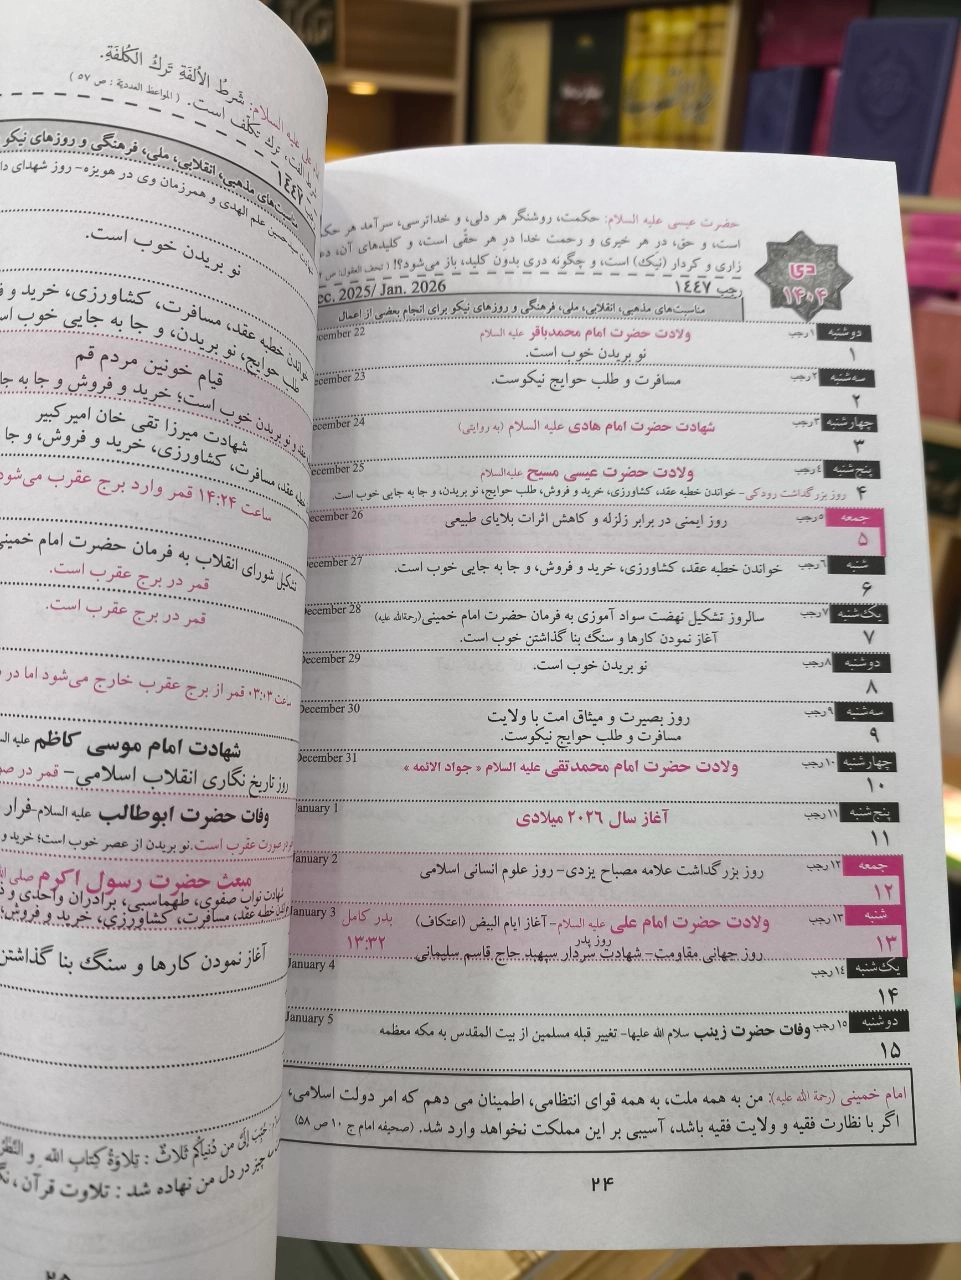 حضرت عیسی علیه السلام: حکمت، روشنگر هر دلی، و خداترسی، سرآمد هر
است، و حق، در هر خیری و رحمت خدا در هر حقّی است، و کلیدهای آن،
زاری و کردار (نیک) است، و چگونه دری بدون کلید، باز می‌شود؟! (تحف العقول:
دی
۱۴۰۴
رجب ۱۴۴۷
Dec. 2025/ Jan. 2026
مناسبت‌های مذهبی، انقلابی، ملی، فرهنگی و روزهای نیکو برای انجام بعضی از اعمال
دوشنبه ۱رجب ولادت حضرت امام محمدباقر علیه السلام December 22
۱ نو بریدن خوب است.
سه‌شنبه ۲رجب مسافرت و طلب حوایج نیکوست. December 23
۲
چهارشنبه ۳رجب شهادت حضرت امام هادی علیه السلام (به روایتی) December 24
۳
پنج‌شنبه ۴رجب ولادت حضرت عیسی مسیح علیه‌السلام December 25
۴ روز بزرگداشت رودکی- خواندن خطبه عقد، کشاورزی، خرید و فروش، طلب حوایج، نو بریدن، و جا به جایی خوب است.
جمعه ۵رجب روز ایمنی در برابر زلزله و کاهش اثرات بلایای طبیعی December 26
۵
شنبه ۶رجب خواندن خطبه عقد، کشاورزی، خرید و فروش، و جا به جایی خوب است. December 27
۶
یک‌شنبه ۷رجب سالروز تشکیل نهضت سواد آموزی به فرمان حضرت امام خمینی(رحمةالله علیه) December 28
۷ آغاز نمودن کارها و سنگ بنا گذاشتن خوب است.
دوشنبه ۸رجب نو بریدن خوب است. December 29
۸
سه‌شنبه ۹رجب روز بصیرت و میثاق امت با ولایت December 30
۹ مسافرت و طلب حوایج نیکوست.
چهارشنبه ۱۰رجب ولادت حضرت امام محمدتقی علیه السلام « جواد الائمه » December 31
۱۰
پنج‌شنبه ۱۱رجب آغاز سال ۲۰۲۶ میلادی January 1
۱۱
جمعه ۱۲رجب روز بزرگداشت علامه مصباح یزدی- روز علوم انسانی اسلامی January 2
۱۲
شنبه ۱۳رجب ولادت حضرت امام علی علیه السلام- آغاز ایام البیض (اعتکاف) بدر کامل January 3
روز پدر
۱۳ روز جهانی مقاومت- شهادت سردار سپهبد حاج قاسم سلیمانی ۱۳:۳۲
یک‌شنبه ۱۴رجب January 4
۱۴
دوشنبه ۱۵رجب وفات حضرت زینب سلام الله علیها- تغییر قبله مسلمین از بیت المقدس به مکه معظمه January 5
۱۵
امام خمینی (رحمة الله علیه): من به همه ملت، به همه قوای انتظامی، اطمینان می دهم که امر دولت اسلامی،
اگر با نظارت فقیه و ولایت فقیه باشد، آسیبی بر این مملکت نخواهد وارد شد. (صحیفه امام ج ۱۰ ص ۵۸)
۲۴
علیه السلام: شَرطُ الاُلفَةِ تَركُ الكُلفَةِ.
ترک تکلّف است. (المواعظ العددیة: ص ۵۷)
۱۴۴۷
مناسبت‌های مذهبی، انقلابی، ملی، فرهنگی و روزهای نیکو
حسین علم الهدی و همرزمان وی در هویزه- روز شهدای
نو بریدن خوب است.
خواندن خطبه عقد، مسافرت، کشاورزی، خرید و
طلب حوایج، نو بریدن، و جا به جایی خوب
قیام خونین مردم قم
و نو بریدن خوب است؛ خرید و فروش و جا به
شهادت میرزا تقی خان امیرکبیر
خطبه عقد، مسافرت، کشاورزی، خرید و فروش، و جا
ساعت ۱۴:۲۴ قمر وارد برج عقرب می‌شود
تشکیل شورای انقلاب به فرمان حضرت امام خمینی
قمر در برج عقرب است.
قمر در برج عقرب است.
ساعت ۰۳:۰۳ قمر از برج عقرب خارج می‌شود اما در
شهادت امام موسی کاظم علیه
روز تاریخ نگاری انقلاب اسلامی- قمر در
وفات حضرت ابوطالب علیه السلام-فرار
در صورت عقرب است. نو بریدن از عصر خوب است؛ خرید و
مبعث حضرت رسول اکرم صلی
شهادت نواب صفوی، طهماسبی، برادران واحدی و
خواندن خطبه عقد، مسافرت، کشاورزی، خرید و فروش؛
آغاز نمودن کارها و سنگ بنا گذاشتن
حُبِّبَ اِلَیَّ مِن دُنیاکُم ثَلاثٌ: تِلاوَةُ کِتابِ اللهِ وَ النَّظَرُ
چیز در دل من نهاده شد: تلاوت قرآن،
۲۵